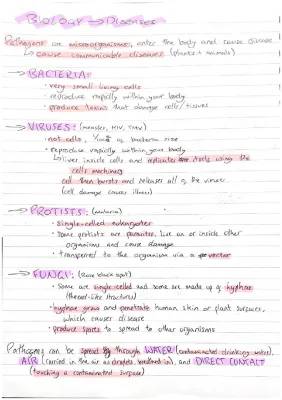 Biology → Diseases
Pathogens are microorganisms, enter the body and cause disease
↳ cause communicable diseases (plants + animals)
→ BACTERIA:
• very small living cells
• reproduce rapidly within your body
• produce toxins that damage cells/tissues
→ VIRUSES: (measles, HIV, TMV)
• not cells, of bacteria size
• reproduce rapidly within your body
↳ live inside cells and replicate itself using the
cells machinery
cell then bursts and releases all of the viruses
(cell damage causes illness)
→ PROTISTS: (malaria)
• single-celled eukaryotes
• some protists are parasites, live on or inside other
organisms and cause damage
• transferred to the organism via a vector
→ FUNGI: (Rose black spot)
• Some are single celled and some are made up of hyphae
(thread-like structures)
• hyphae grow and penetrate human skin or plant surfaces,
which causes disease
• produce spores to spread to other organisms
Pathogens can be spread through WATER (contaminated drinking water),
AIR (carried in the air as droplets, breathed in), and DIRECT CONTACT
(touching a contaminated surface)